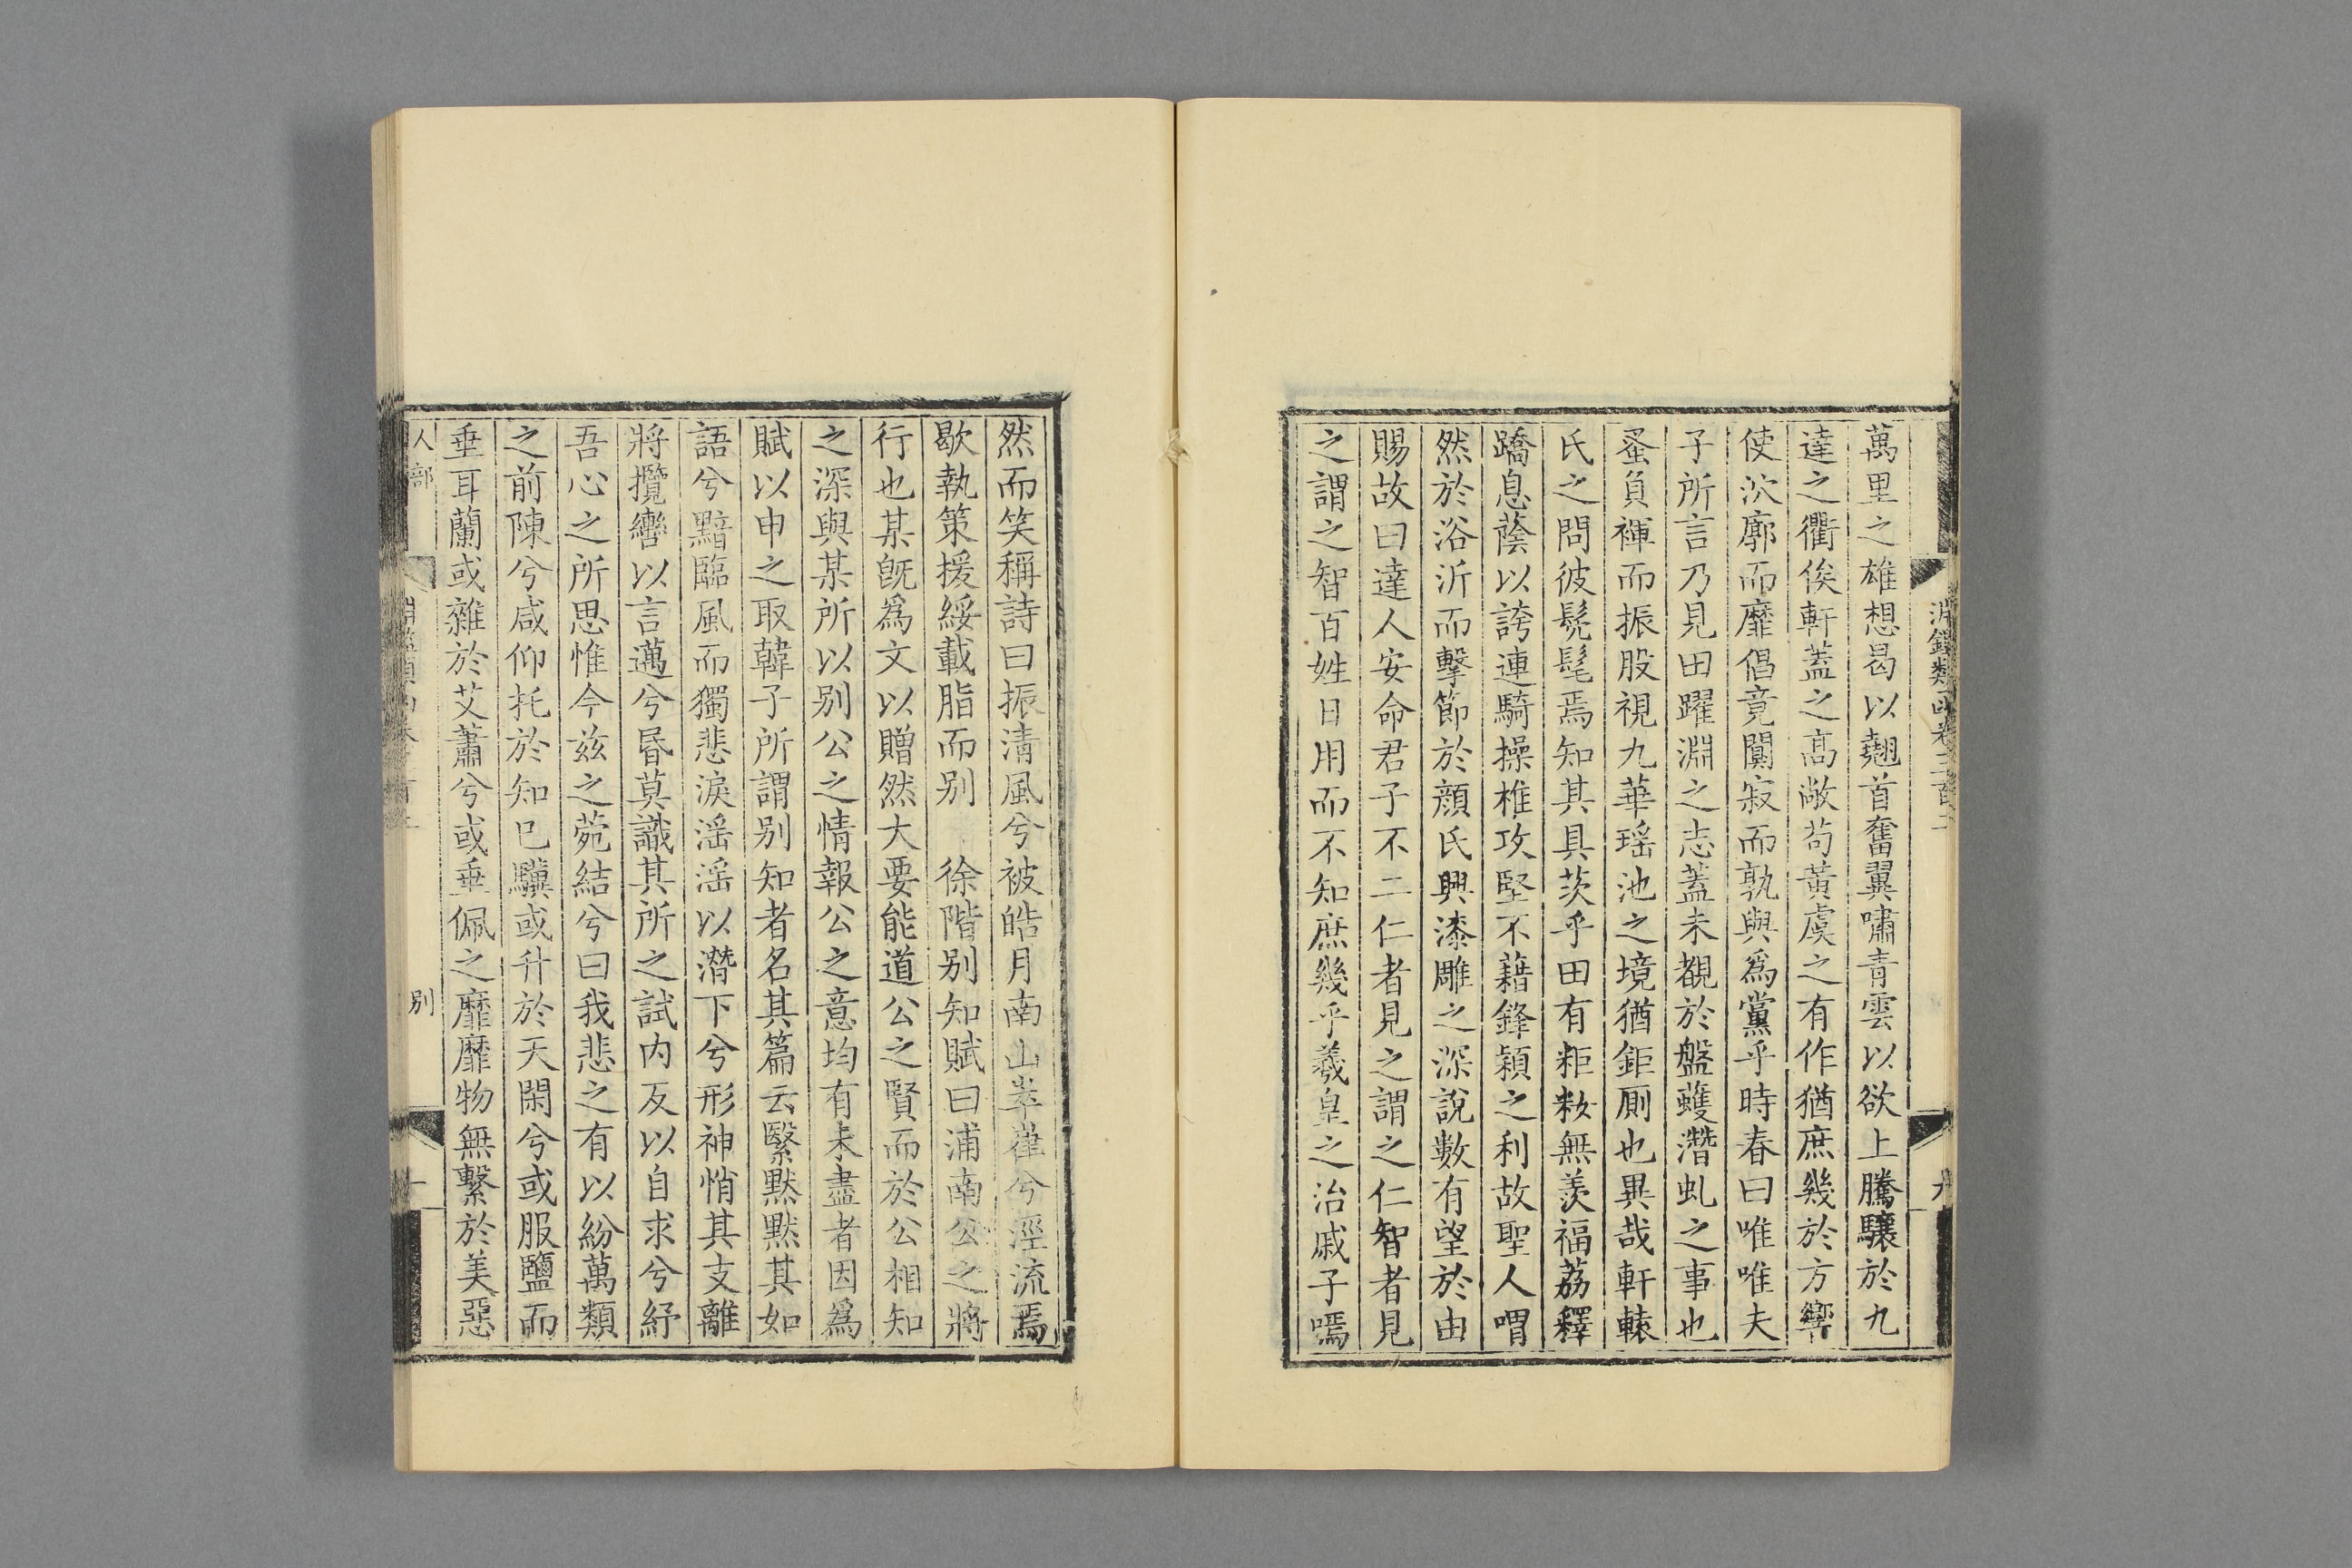 淵鑑類函卷三百二
萬里之雄想曷以翹首奮翼嘯青雲以欲上騰驤於九
達之衢俟軒蓋之高敞苟黃虞之有作猶庶幾於方響
使泬廓而靡倡竟闃寂而孰與爲黨乎時春曰唯唯夫
子所言乃見田躍淵之志蓋未覩於盤蠖潛虬之事也
蚤負褌而振股視九華瑤池之境猶鉅厠也異哉軒轅
氏之問彼髡髦焉知其具茨乎田有粔籹無羨福荔釋
蹻息蔭以誇連騎操椎攻堅不藉鋒穎之利故聖人喟
然於浴沂而擊節於顔氏興漆雕之深說數有望於由
賜故曰達人安命君子不二仁者見之謂之仁智者見
之謂之智百姓日用而不知庶幾乎羲皇之治戚子嗎
然而笑稱詩曰振清風兮被皓月南山崒嵂兮涇流焉
歇執策援綏載脂而别　徐階别知賦曰浦南公之將
行也某旣爲文以贈然大要能道公之賢而於公相知
之深與某所以别公之情報公之意均有未盡者因爲
賦以申之取韓子所謂别知者名其篇云緊黙黙其如
語兮黯臨風而獨悲淚滛滛以潛下兮形神悄其支離
將攬轡以言邁兮昬莫識其所之試内反以自求兮紓
吾心之所思惟今茲之菀結兮曰我悲之有以紛萬類
之前陳兮咸仰托於知己驥或升於天閑兮或服鹽而
垂耳蘭或雜於艾蕭兮或垂佩之靡靡物無繫於美惡
人部
别